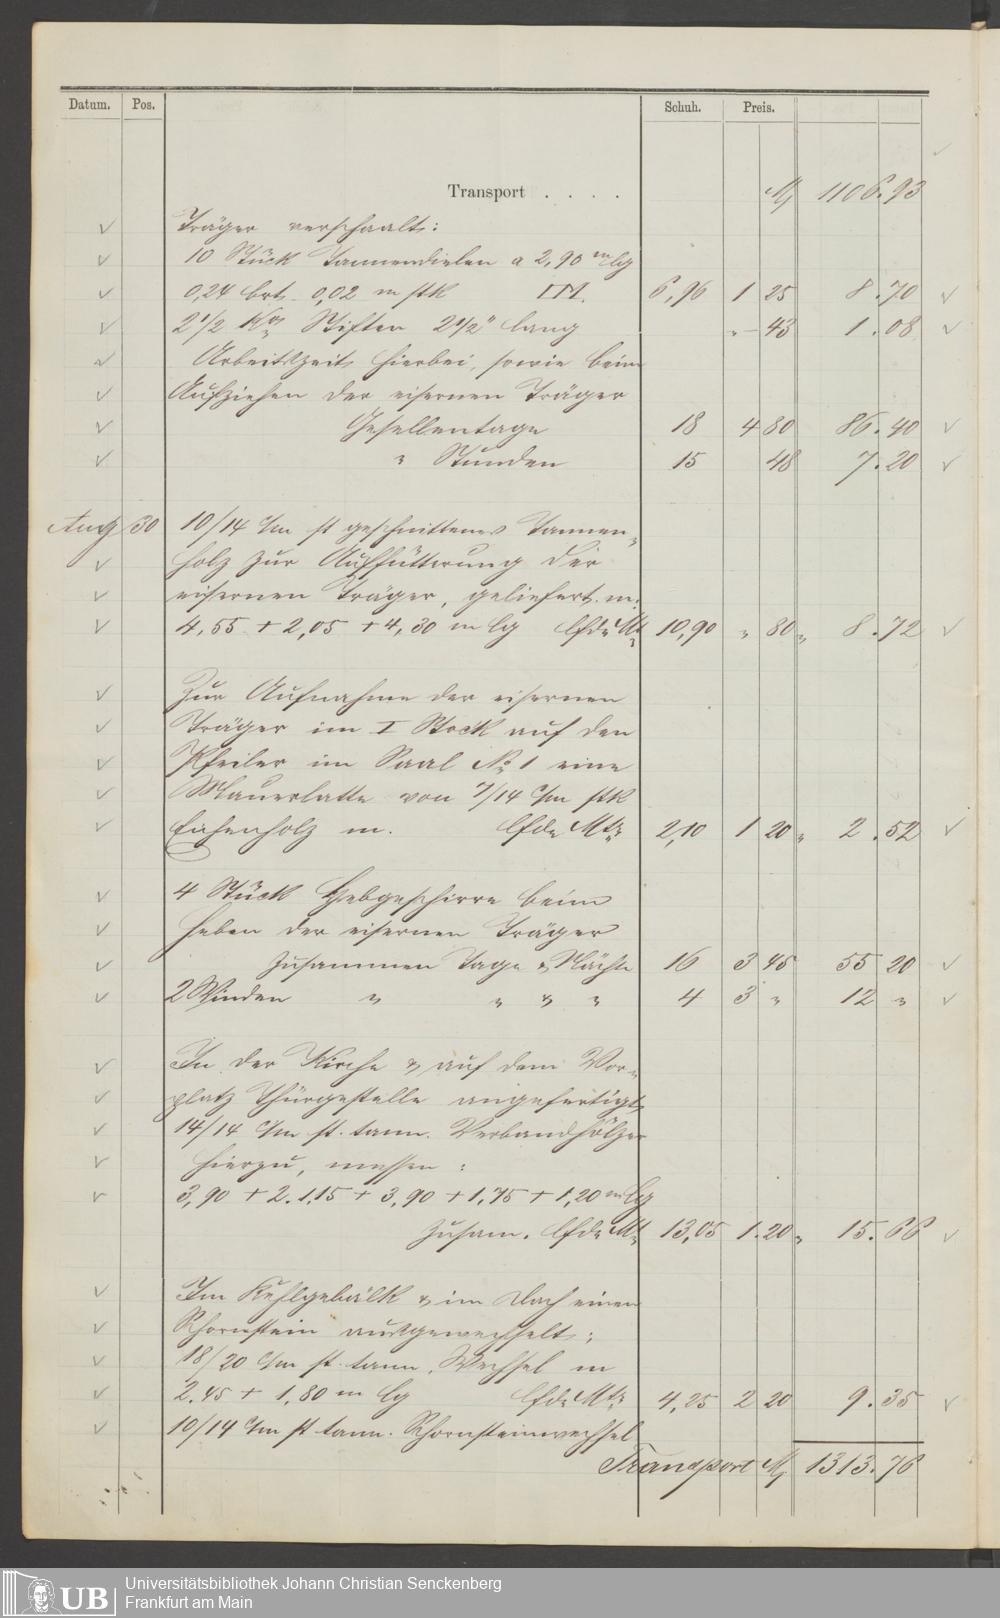 Datum. Pos. Schuh. Preis.
Transport . . . . M 1106.93
Träger verschaalt:
10 Stück Tannendielen a 2,90 m lg
0,24 brt. 0,02 m stk □M. 6,96 1 25 8.70
2 1/2 Kg Stiften 2 1/2" lang " 43 1.08
Arbeitszeit hierbei, sowie beim
Aufziehen der eisernen Träger
Gesellentage 18 4 80 86.40
" Stunden 15 48 7.20
Aug 30 10/14 c/m st geschnittenes Tannen-
holz zur Auffütterung der
eisernen Träger, geliefert. m.
4,55 + 2,05 + 4,30 m lg lfde Mt 10,90 " 80 " 8.72
Zur Aufnahme der eisernen
Träger im I Stock auf den
Pfeiler im Saal No 1 eine
Mauerlatte von 7/14 c/m stk
Eichenholz m. lfde Mtr 2,10 1 20 " 2.52
4 Stück Hebgeschirre beim
heben der eisernen Träger
zusammen Tage & Nächte 16 3 45 55 20
2 Winden " " " " 4 3 " 12 "
In der Kirche & auf dem Vor-
platz Thürgestelle angefertigt
14/14 c/m st. tann. Verbandhölzer
hierzu, messen:
3,90 + 2.1,15 + 3,90 + 1,75 + 1,20 m lg
zusam. lfde Mt 13,05 1.20 " 15.66
Im Kehlgebälk & im Dach einen
Schornstein ausgewechselt:
18/20 c/m st. tann. Wechsel m
2.45 + 1,80 m lg lfde Mtr 4,25 2 20 9.35
10/14 c/m st tann. Schornsteinwechsel
Transport M 1313.76
UB Universitätsbibliothek Johann Christian Senckenberg
Frankfurt am Main